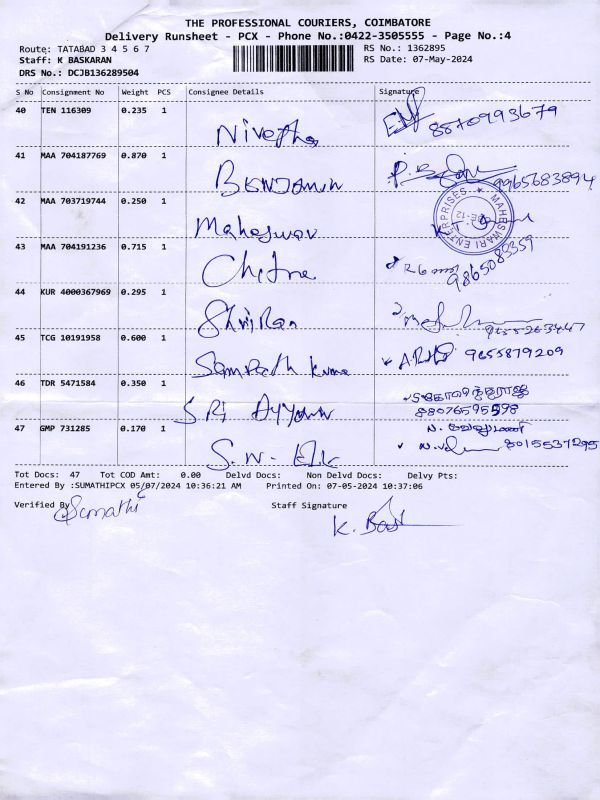 THE PROFESSIONAL COURIERS, COIMBATORE
Delivery Runsheet - PCX - Phone No.:0422-3505555 - Page No.:4
Route: TATABAD 3 4 5 6 7 RS No.: 1362895
Staff: K BASKARAN RS Date: 07-May-2024
DRS No.: DCJB136289504
S No Consignment No Weight PCS Consignee Details Signature
40 TEN 116309 0.235 1 Nivetha 8870993679
41 MAA 704187769 0.870 1 BENJAMIN 9965683894
42 MAA 703719744 0.250 1 Maheswar
MAHESWARI ENTERPRISES
43 MAA 704191236 0.715 1 Chitra 9865083359
44 KUR 4000367969 0.295 1 Shriram 9655263447
45 TCG 10191958 0.600 1 Sampath kumar 9655879209
46 TDR 5471584 0.350 1 SRI Ayyanar
88076595598
47 GMP 731285 0.170 1 S.N. 8015537295
Tot Docs: 47 Tot COD Amt: 0.00 Delvd Docs: Non Delvd Docs: Delvy Pts:
Entered By :SUMATHIPCX 05/07/2024 10:36:21 AM Printed On: 07-05-2024 10:37:06
Verified By Sumathi Staff Signature
K. Bas